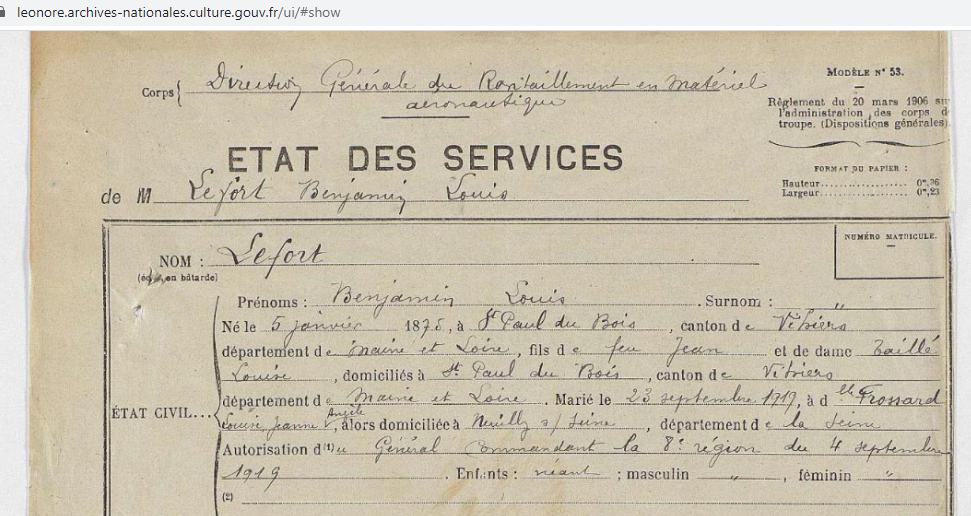 leonore.archives-nationales.culture.gouv.fr/ui/#show
Corps { Direction Générale du Ravitaillement en Matériel
aéronautique
MODÈLE N° 53.
Règlement du 20 mars 1906 su
l'administration des corps d
troupe. (Dispositions générales).
ETAT DES SERVICES
FORMAT DU PAPIER :
Hauteur.................. 0m,36
Largeur.................. 0m,23
de M Lefort Benjamin Louis
NUMÉRO MATRICULE.
NOM : Lefort
(écrit en bâtarde)
Prénoms : Benjamin Louis . Surnom : "
Né le 5 janvier 1875, à St Paul du Bois , canton de Vihiers
département de Maine et Loire , fils de feu Jean et de dame Taillé
Louise , domiciliés à St Paul du Bois , canton de Vihiers
département de Maine et Loire . Marié le 23 septembre 1919, à d elle Frossard
ÉTAT CIVIL... Louise Jeanne Angèle , alors domiciliée à Neuilly s/ Seine , département de la Seine
Autorisation d(1)u Général Commandant la 8e région du 4 septembre
1919 . Enfants : néant ; masculin " , féminin "
(2)